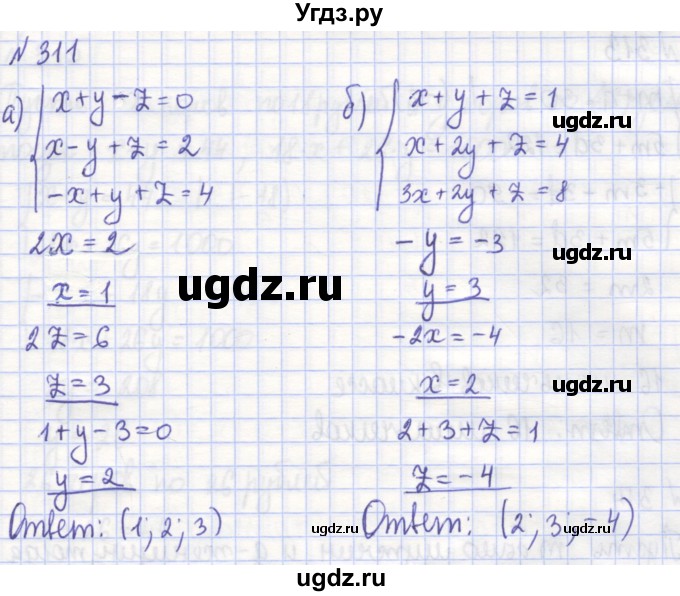 Угдз.ру
№ 311
а)
x + y − z = 0
x − y + z = 2
−x + y + z = 4
2x = 2
x = 1
2z = 6
z = 3
1 + y − 3 = 0
y = 2
Ответ: (1; 2; 3)
б)
x + y + z = 1
x + 2y + z = 4
3x + 2y + z = 8
−y = −3
y = 3
−2x = −4
x = 2
2 + 3 + z = 1
z = −4
Ответ: (2; 3; −4)
ugdz.ru
ugdz.ru
ugdz.ru
ugdz.ru
ugdz.ru
ugdz.ru
ugdz.ru
ugdz.ru